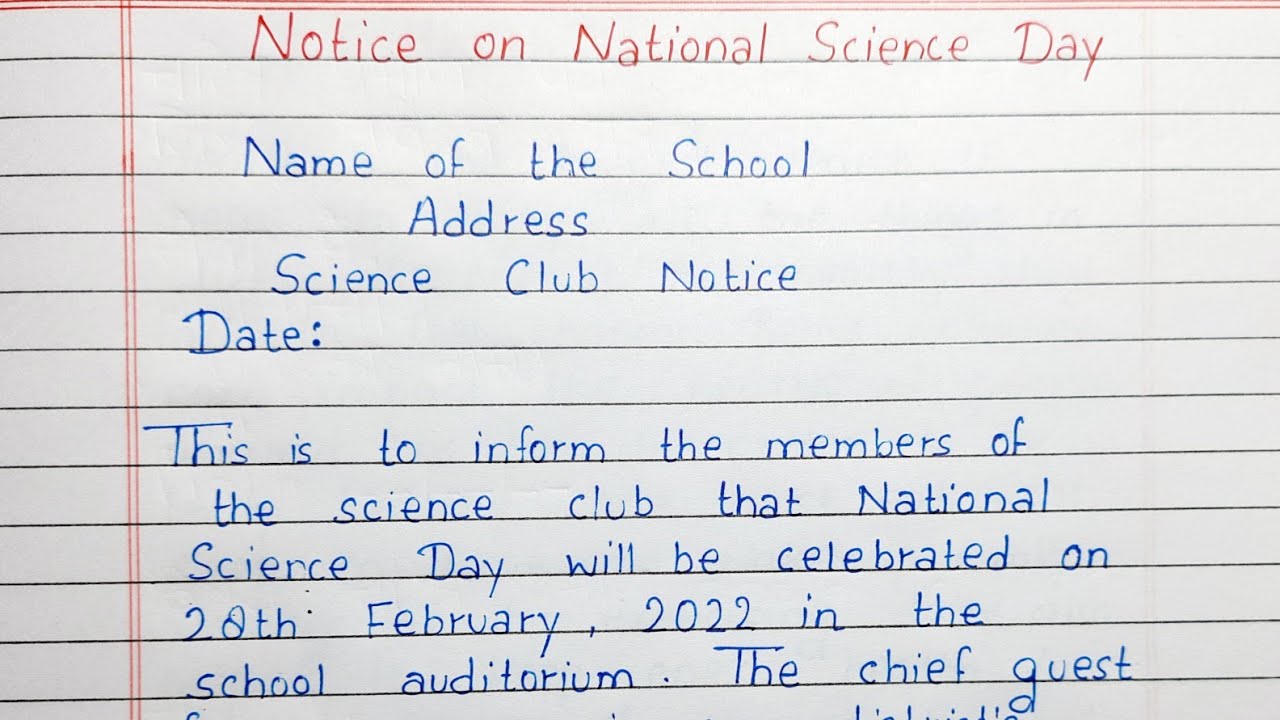 Notice on National Science Day
Name of the School
Address
Science Club Notice
Date:
This is to inform the members of
the science club that National
Science Day will be celebrated on
28th February, 2022 in the
school auditorium. The chief guest